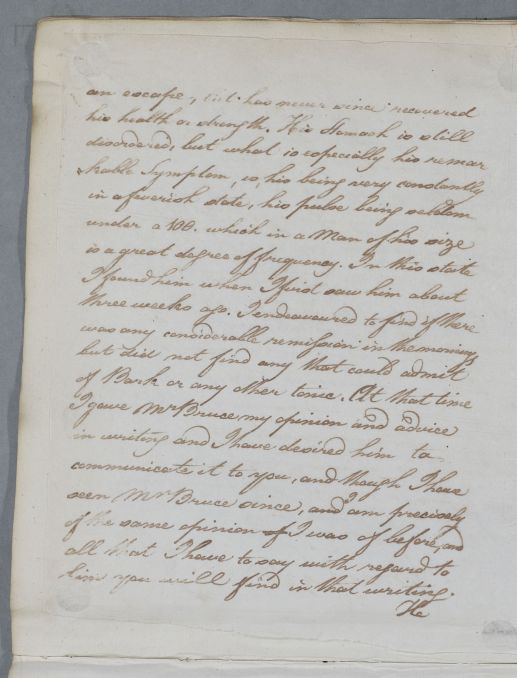 an escape, but has never since recovered
his health or strength. His Stomach is still
disordered, but what is especially his remar
kable Symptom, is, his being very constantly
in a feverish state, his pulse being seldom
under a 100. which in a Man of his size
is a great degree of frequency. In this state
I found him when I first saw him about
three weeks ago. I endeavoured to find if there
was any considerable remission in the morning
but did not find any that could admit
of Bark or any other tonic. At that time
I gave Mr Bruce, my opinion and advice
in writing and I have desired him to
communicate it to you, and though I have
seen Mr Bruce since, and I am precisely
of the same opinion I was of before, and
all that I have to say with regard to
him you will find in that writing.
He